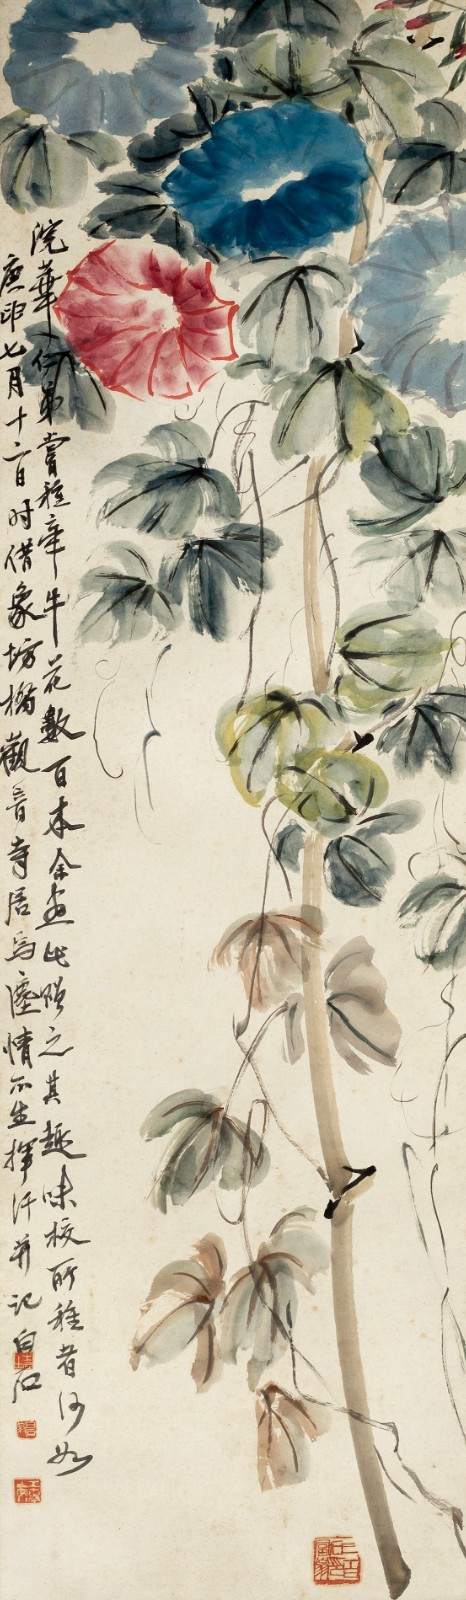 浣華仁弟嘗種牽牛花數百本余畫此贈之其趣味校所種者何如
庚申七月十二日時借象坊橋觀音寺居焉塵情不生揮汗并記白石